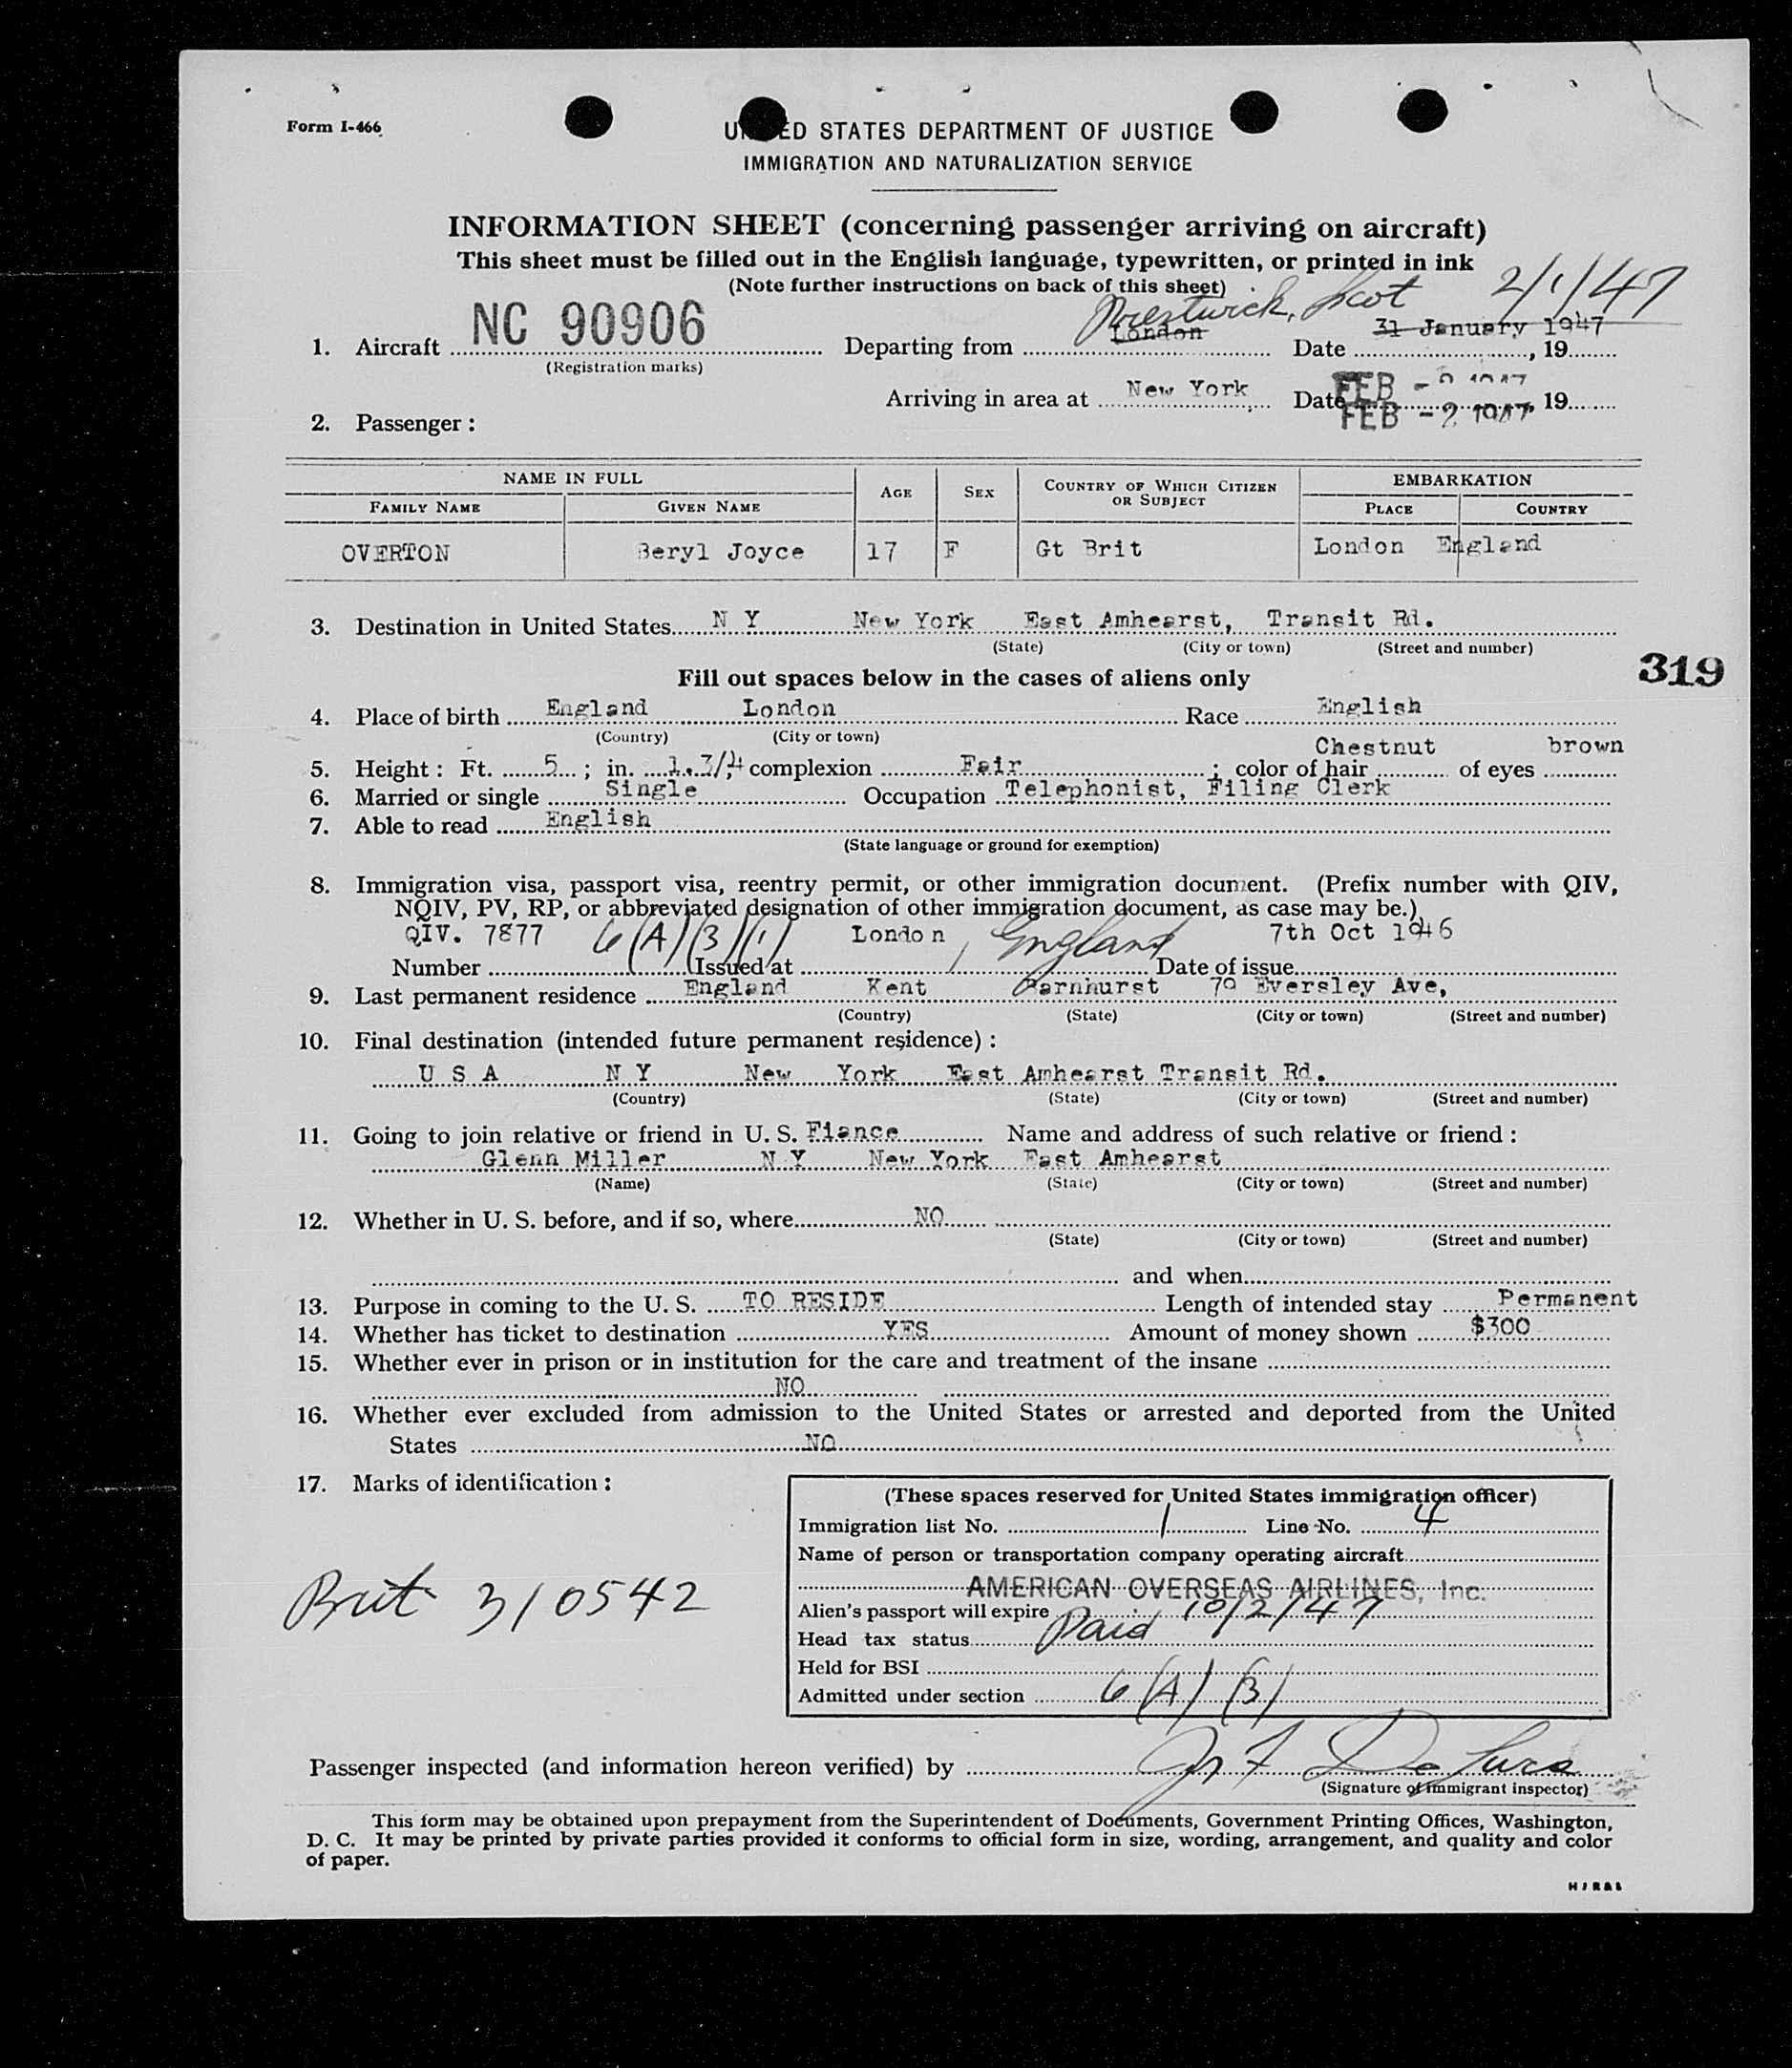 Form I-466
UNITED STATES DEPARTMENT OF JUSTICE
IMMIGRATION AND NATURALIZATION SERVICE
INFORMATION SHEET (concerning passenger arriving on aircraft)
This sheet must be filled out in the English language, typewritten, or printed in ink
(Note further instructions on back of this sheet)
Prestwick, Scot 2/1/47
1. Aircraft NC 90906 Departing from London Date 31 January 1947, 19
(Registration marks)
Arriving in area at New York Date FEB - 2 1947, 19
FEB - 2 1947
2. Passenger :
NAME IN FULL AGE SEX COUNTRY OF WHICH CITIZEN OR SUBJECT EMBARKATION
FAMILY NAME GIVEN NAME PLACE COUNTRY
OVERTON Beryl Joyce 17 F Gt Brit London England
3. Destination in United States N Y New York East Amhearst, Transit Rd.
(State) (City or town) (Street and number)
319
Fill out spaces below in the cases of aliens only
4. Place of birth England London Race English
(Country) (City or town)
Chestnut brown
5. Height : Ft. 5 ; in. 1.3/4 complexion Fair ; color of hair of eyes
6. Married or single Single Occupation Telephonist, Filing Clerk
7. Able to read English
(State language or ground for exemption)
8. Immigration visa, passport visa, reentry permit, or other immigration document. (Prefix number with QIV,
NQIV, PV, RP, or abbreviated designation of other immigration document, as case may be.)
QIV. 7877 6(A)(3)(1) London, England 7th Oct 1946
Number Issued at Date of issue
9. Last permanent residence England Kent Barnhurst 79 Eversley Ave,
(Country) (State) (City or town) (Street and number)
10. Final destination (intended future permanent residence) :
U S A N Y New York East Amhearst Transit Rd.
(Country) (State) (City or town) (Street and number)
11. Going to join relative or friend in U. S. Fiance Name and address of such relative or friend :
Glenn Miller N Y New York East Amhearst
(Name) (State) (City or town) (Street and number)
12. Whether in U. S. before, and if so, where NO
(State) (City or town) (Street and number)
and when
13. Purpose in coming to the U. S. TO RESIDE Length of intended stay Permanent
14. Whether has ticket to destination YES Amount of money shown $300
15. Whether ever in prison or in institution for the care and treatment of the insane
NO
16. Whether ever excluded from admission to the United States or arrested and deported from the United
States NO
17. Marks of identification :
Brit 310542
(These spaces reserved for United States immigration officer)
Immigration list No. 1 Line No. 4
Name of person or transportation company operating aircraft
AMERICAN OVERSEAS AIRLINES, Inc.
Alien's passport will expire 10/2/47
Head tax status Paid
Held for BSI
Admitted under section 6(A)(3)
Passenger inspected (and information hereon verified) by
(Signature of immigrant inspector)
This form may be obtained upon prepayment from the Superintendent of Documents, Government Printing Offices, Washington,
D. C. It may be printed by private parties provided it conforms to official form in size, wording, arrangement, and quality and color
of paper.